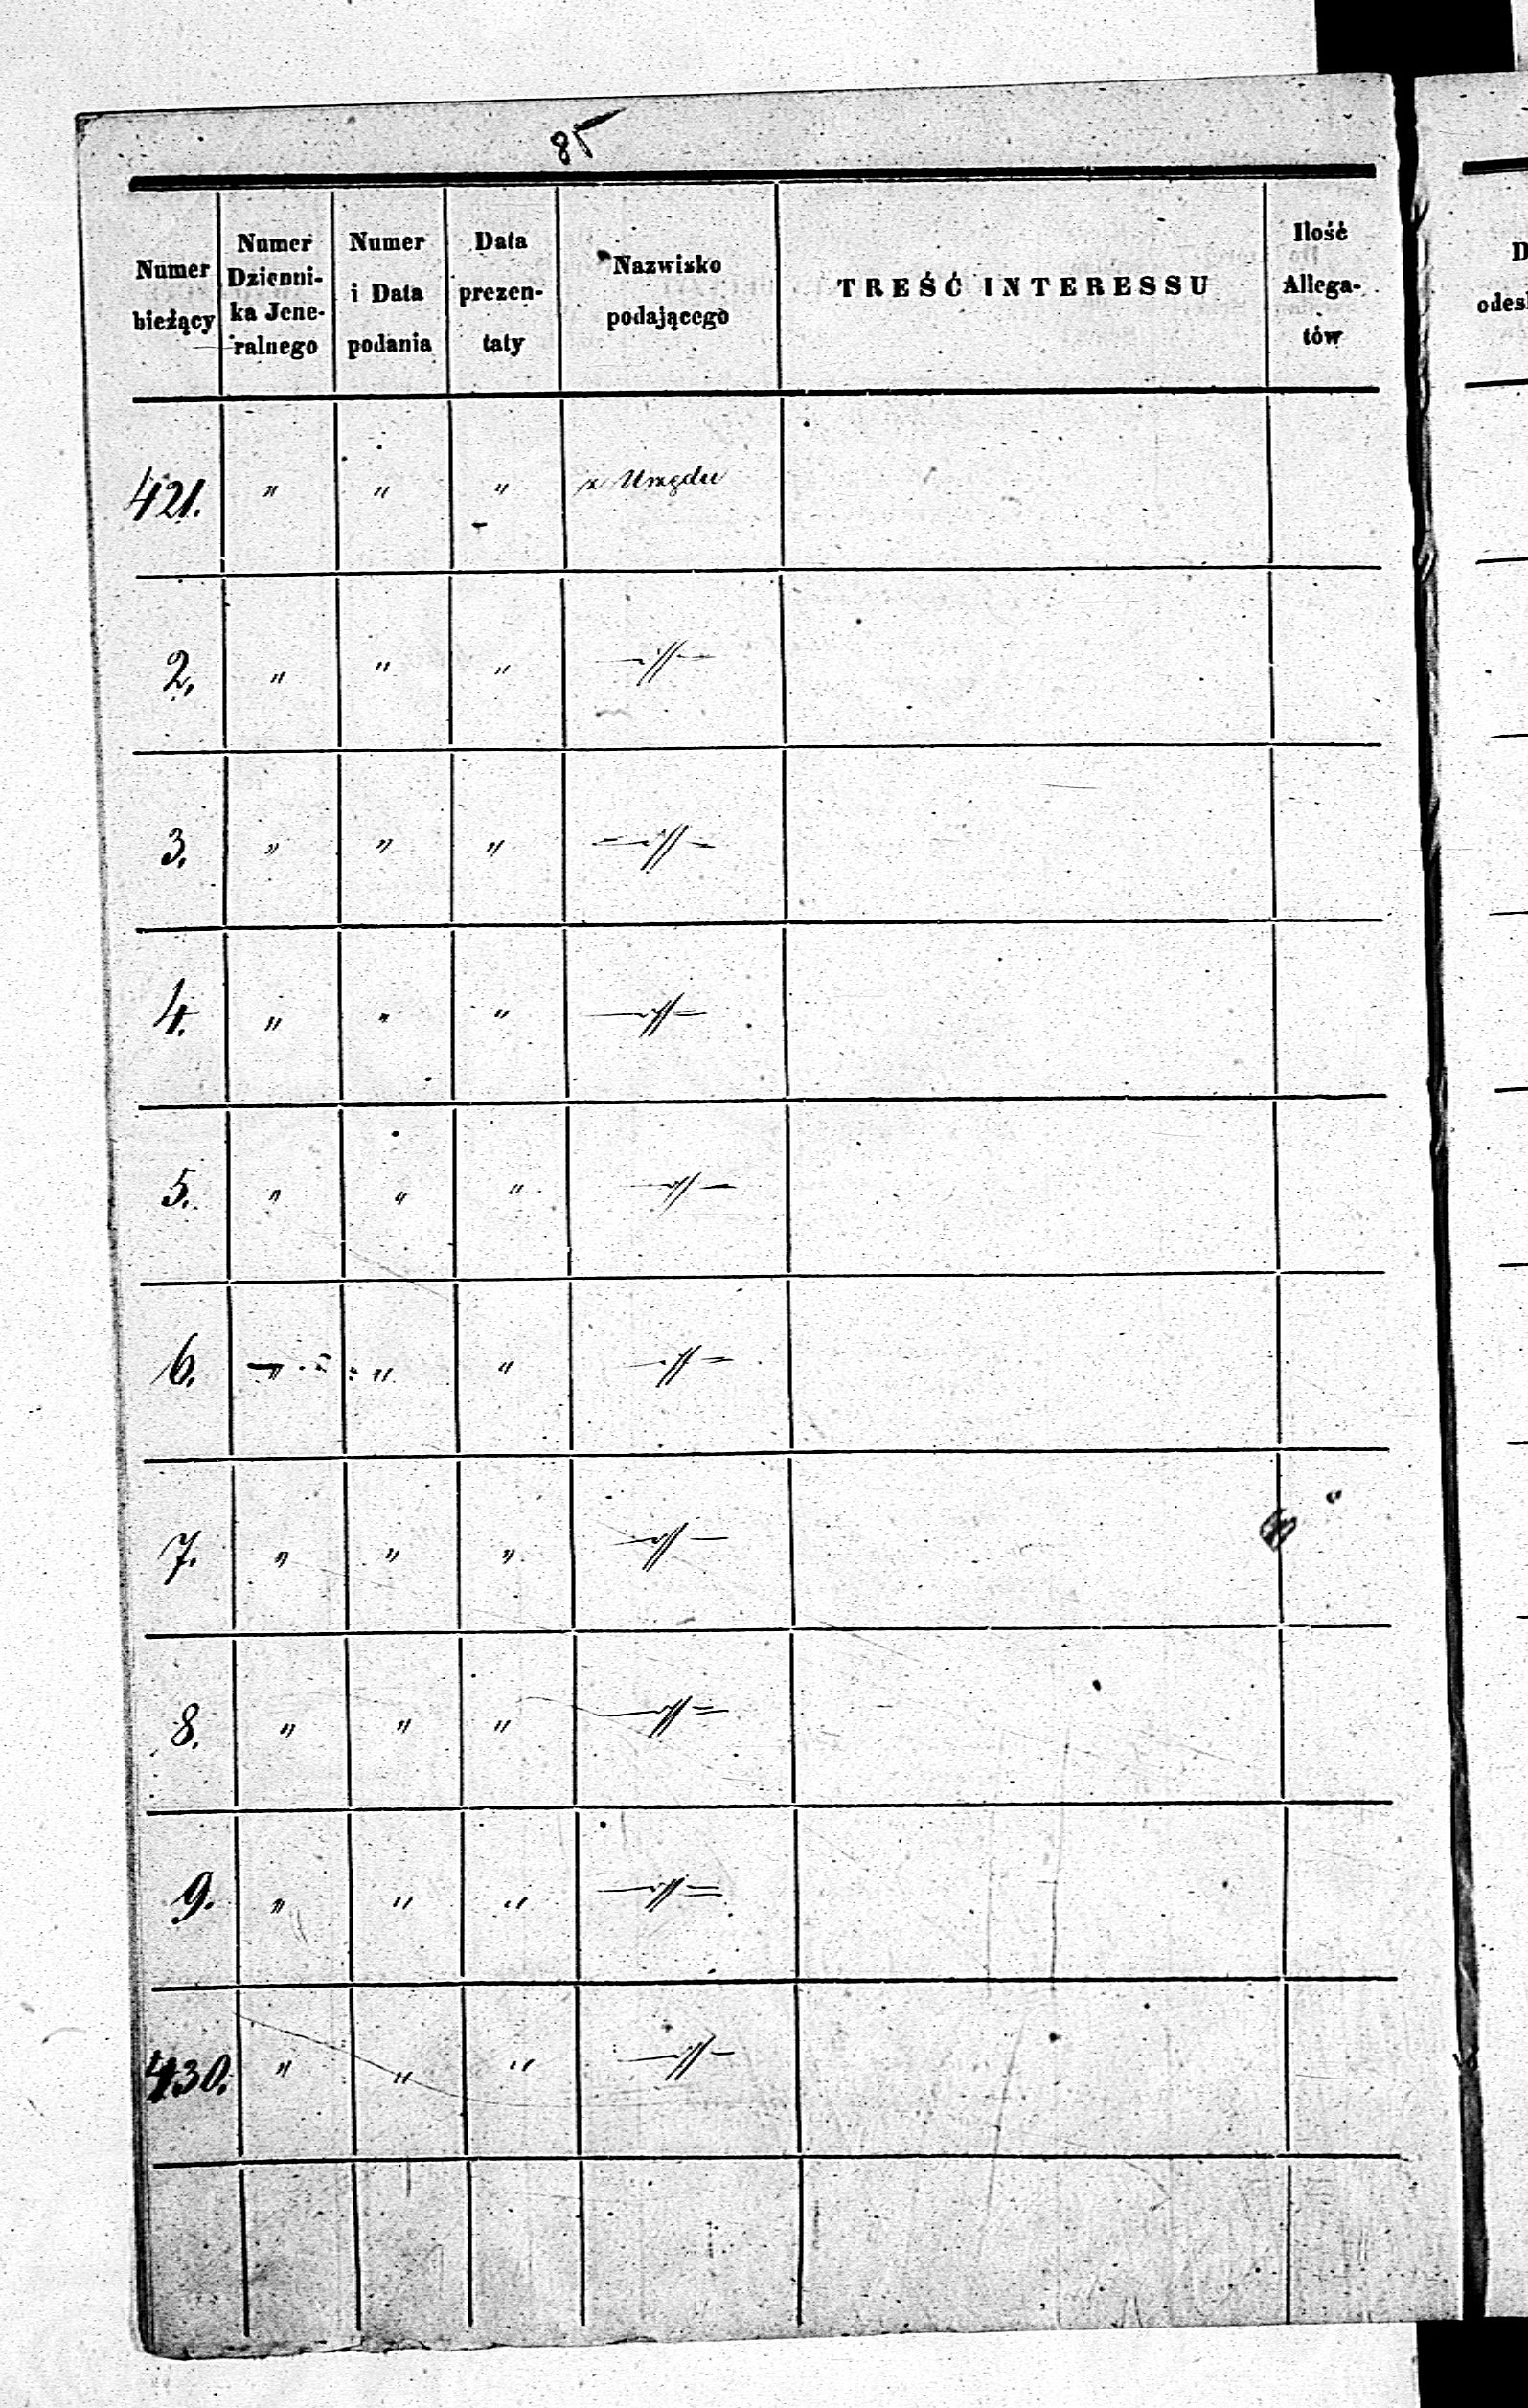 85
Numer bieżący | Numer Dzienni-ka Jene-ralnego | Numer i Data podania | Data prezen-taty | Nazwisko podającego | TREŚĆ INTERESSU | Ilość Allega-tów
421. | " | " | " | z Urzędu
2. | " | " | " | —//—
3. | " | " | " | —//—
4. | " | " | " | —//—
5. | " | " | " | —//—
6. | " | " | " | —//—
7. | " | " | " | —//—
8. | " | " | " | —//—
9. | " | " | " | —//—
430. | " | " | " | —//—